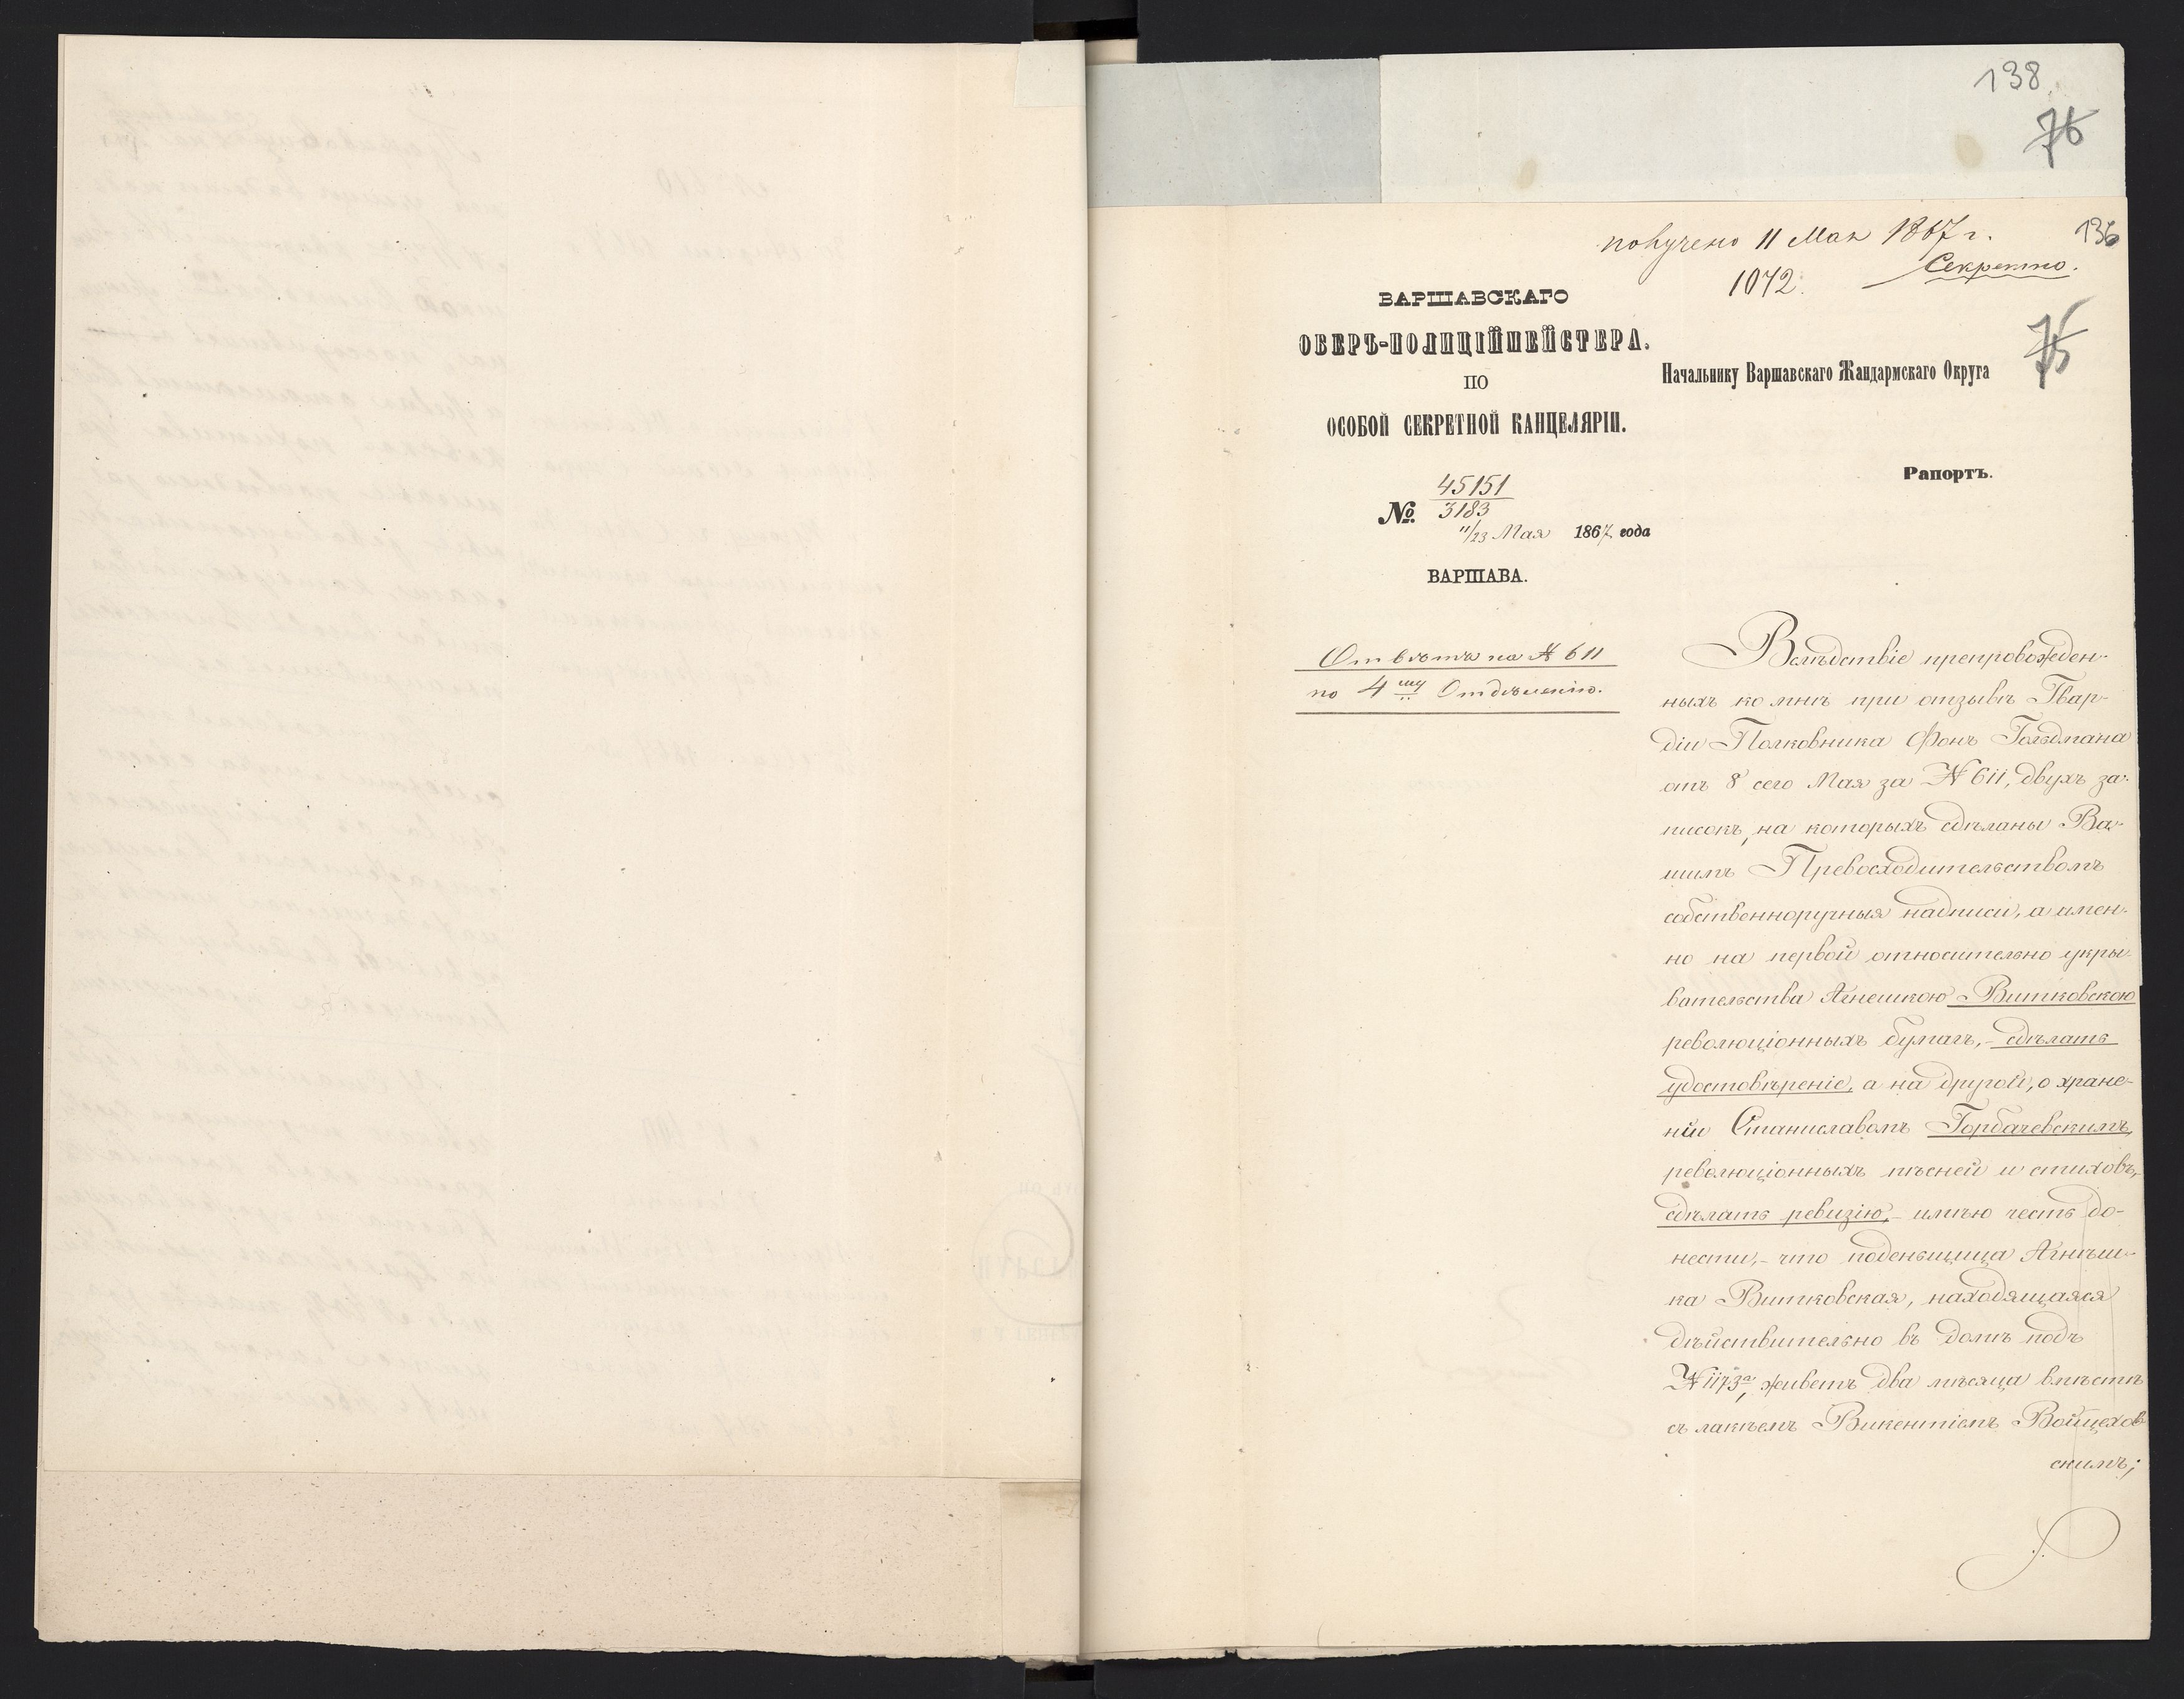 138
76
получено 11 Мая 1867 г.
136
1072.
Секретно.
75
ВАРШАВСКАГО
ОБЕРЪ-ПОЛИЦІЙМЕЙСТЕРА.
ПО
ОСОБОЙ СЕКРЕТНОЙ КАНЦЕЛЯРІИ.
№ 45151
3183
11/23 Мая 1867 года
ВАРШАВА.
Начальнику Варшавскаго Жандармскаго Округа
Рапортъ.
Отвѣтъ на № 611
по 4му Отдѣленію.
Вслѣдствіе препровожден-
ныхъ ко мнѣ при отзывѣ Гвар-
діи Полковника Фонъ Гольдмана
отъ 8 сего Мая за № 611, двухъ за-
писокъ, на которыхъ сдѣланы Ва-
шимъ Превосходительствомъ
собственноручныя надписи, а имен-
но на первой относительно укры-
вательства Агнешкою Витковскою
революціонныхъ бумагъ, - сдѣлать
удостовѣреніе, а на другой, о хране-
ніи Станиславомъ Горбачевскимъ,
революціонныхъ пѣсней и стиховъ,-
сдѣлать ревизію,- имѣю честь до-
нести,- что поденьщица Агнѣш-
ка Витковская, находящаяся
дѣйствительно въ домѣ подъ
№ 1173а, живетъ два мѣсяца вмѣстѣ
съ лакѣемъ Викентіемъ Войцехов-
скимъ;